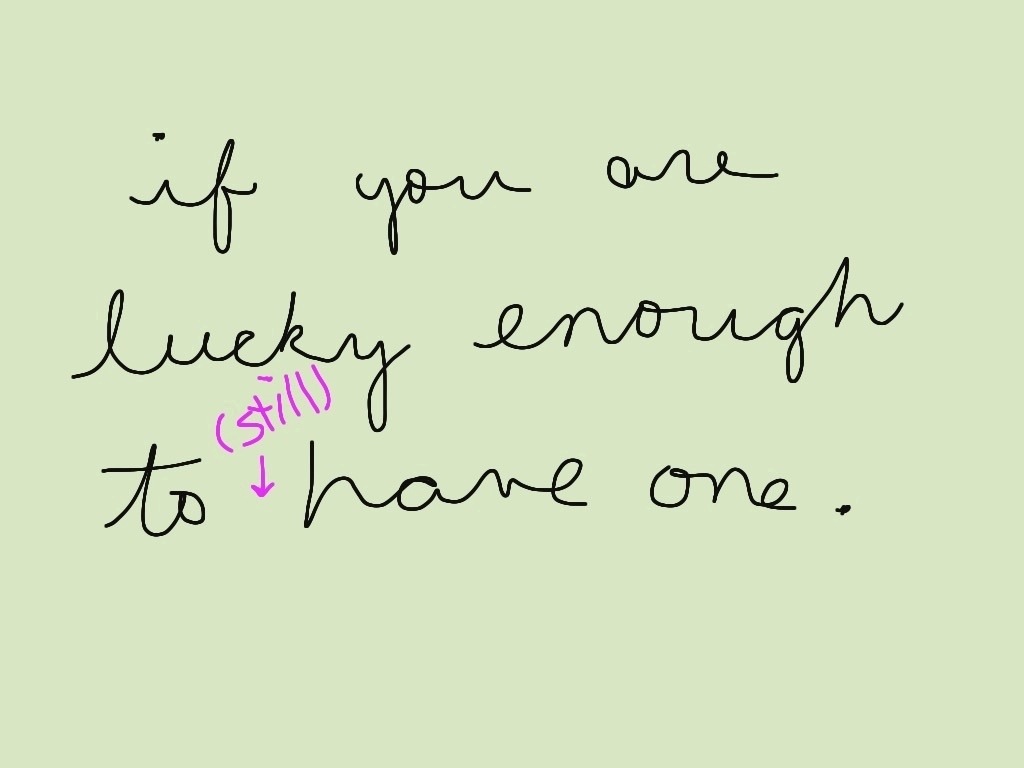 if you are
lucky enough
(still)
to ↓ have one.